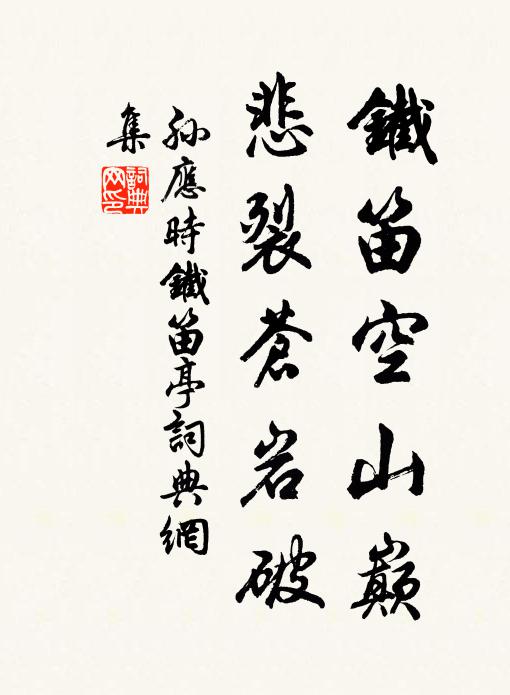 鐵笛空山巔
悲裂蒼岩破
孫應時鐵笛亭詞典網
集
詞典网印